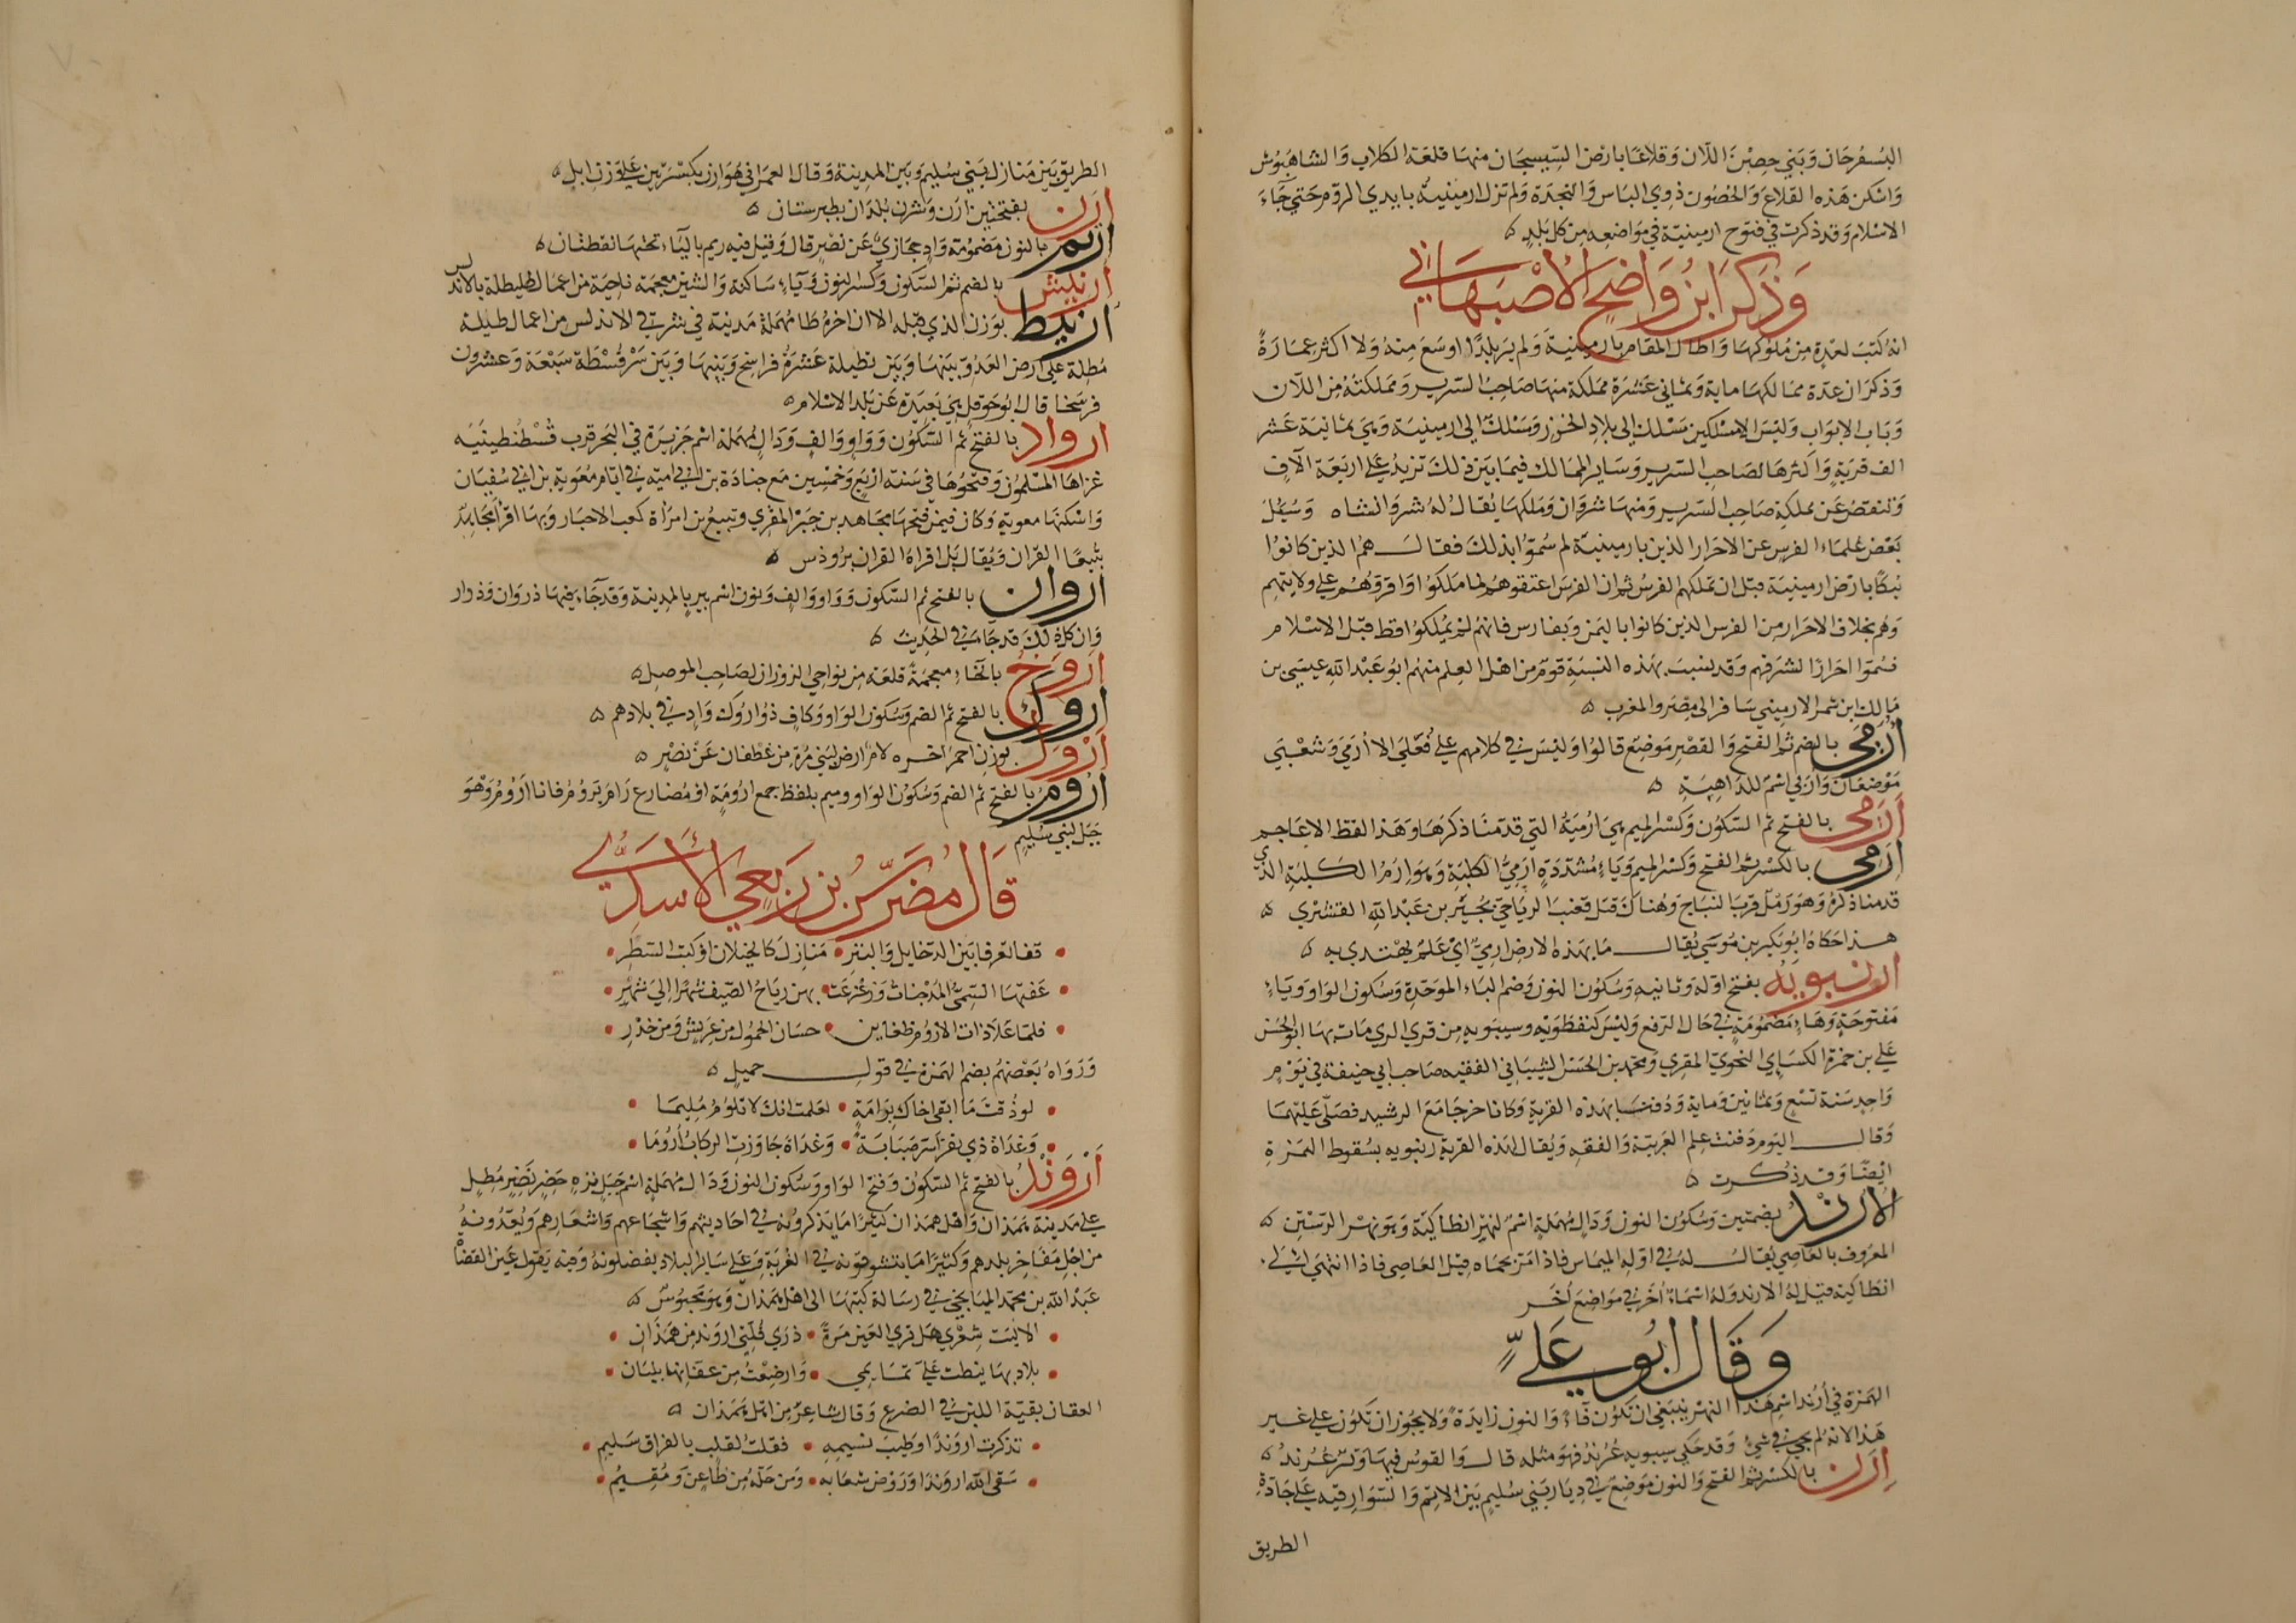 البسفرجان وبني حصن اللان وقلاعا بارض السيسجان منها قلعة الكلاب والشاهبوش
واسكن هذه القلاع والحصون ذوي الباس والنجدة ولم تزل ارمينية بايدي الروم حتي جاء
الاسلام وقد ذكرت في فتوح ارمينية في مواضعه من كل بلد
وذكر ابن واضح الاصبهاني
انه كتب لعدة من ملوكها واطال المقام بارمينية ولم ير بلدا اوسع منه ولا اكثر عمارة
وذكر ان عدة ممالكها ماية وثماني عشرة مملكة منها صاحب السرير ومملكته من اللان
وباب الابواب وليس الا مسلكين مسلك الي بلاد الخزر ومسلك الي ارمينية وهي ثمانية عشر
الف قرية واكثرها لصاحب السرير وساير الممالك فيما بين ذلك تزيد علي اربعة الاف
وتنقص عن مملكة صاحب السرير ومنها شروان وملكها يقال له شروانشاه وسيل
بعض علماء الفرس عن الاحرار الذين بارمينية لم سموا بذلك فقال هم الذين كانوا
نبلا بارض ارمينية قبل ان تملكهم الفرس ثم ان الفرس اعتقوهم لما ملكوا واقروهم علي ولايتهم
وهم بخلاف الاحرار من الفرس الذين كانوا باليمن وبفارس فانهم لم يملكوا قط قبل الاسلام
فسموا احرارا لشرفهم وقد نسب بهذه النسبة قوم من اهل العلم منهم ابو عبد الله عيسي بن
مالك ابن شمر الارميني سافر الي مصر والمغرب
أرمي بالضم ثم الفتح والقصر موضع قالوا وليس في كلامهم علي فعلي الا أرمي وشعبي
موضعان وأربي اسم للداهية
أرمي بالفتح ثم السكون وكسر الميم هي ارمية التي قدمنا ذكرها وهذا لفظ الاعاجم
إرمي بالكسر ثم الفتح وكسر الميم وياء مشددة ارمي الكلبة وهو ارم الكلبة الذي
قدمنا ذكره وهو رمل قرب النباج وهناك قتل قعنب الرياحي بجير بن عبد الله القشيري
هذا حكاه ابو بكر بن موسي يقال ما بهذه الارض ارمي اي علم يهتدي به
ارنبويه بفتح اوله وثانيه وسكون النون وضم الباء الموحدة وسكون الواو وياء
مفتوحة وهاء مضمومة في حال الرفع وليس كنفطويه وسيبويه من قري الري مات بها ابو الحسن
علي بن حمزة الكساي النحوي المقري ومحمد بن الحسن الشيباني الفقيه صاحب ابي حنيفة في يوم
واحد سنة تسع وثمانين وماية ودفنا بهذه القرية وكانا خرجا مع الرشيد فصلي عليهما
وقال اليوم دفنت علم العربية والفقه ويقال لهذه القرية رنبويه بسقوط الهمزة
ايضا وقد ذكرت
الأرند بضمتين وسكون النون ودال مهملة اسم لنهر انطاكية وهو نهر الرستن
المعروف بالعاصي يقال له في اوله الميماس فاذا مر بحماه قيل العاصي فاذا انتهي الي
انطاكية قيل له الارند وله اسماء أخر في مواضع أخر
وقال ابو علي
الهمزة في أرند اسم هذا النهر ينبغي ان تكون فاء والنون زايدة ولا يجوز ان تكون علي غير
هذا لانه لم يجي في شي وقد حكي سيبويه عرند فهو مثله قال والقوس فيها وتر عرند
إرن بالكسر ثم الفتح والنون موضع في ديار بني سليم بين الاتم والسوارقيه علي جادة
الطريق
الطريق بين منازل بني سليم وبين المدينة وقال العمراني هو ارن بكسرتين علي وزن ابل
أرن بفتحتين ارن وشرن بلدان بطبرستان
ارنم بالنون مضمومة واد حجازي عن نصر قال وقيل فيه ريم بالياء تحتها نقطتان
ارنيش بالضم ثم السكون وكسر النون وياء ساكنة والشين معجمة ناحية من اعمال طليطلة بالاندلس
ارنيط بوزن الذي قبله الا ان اخره طا مهملة مدينة في شرقي الاندلس من اعمال تطيلة
مطلة علي ارض العدو بينها وبين تطيلة عشرة فراسخ وبينها وبين سرقسطة سبعة وعشرون
فرسخا قال ابو حوقل هي بعيدة عن بلد الاسلام
ارواد بالفتح ثم السكون وواو والف ودال مهملة اسم جزيرة في البحر قرب قسطنطينية
غزاها المسلمون وفتحوها في سنة اربع وخمسين مع جنادة بن ابي امية في ايام معوية بن ابي سفيان
واسكنها معوية وكان فيمن فتحها مجاهد بن جبر المقري وتبيع بن امراة كعب الاحبار وبها اقرا مجاهد
تبيعا القران ويقال بل اقراه القران برودس
اروان بالفتح ثم السكون وواو والف ونون اسم بير بالمدينة وقد جاء فيها ذروان وذوار
وان كل ذلك قد جا في الحديث
اروخ بالخاء معجمة قلعة من نواحي الزوزان لصاحب الموصل
اروك بالفتح ثم الضم وسكون الواو وكاف ذو اروك واد في بلادهم
أرول بوزن احمر اخره لام ارض لبني مرة من غطفان عن نصر
اروم بالفتح ثم الضم وسكون الواو وميم بلفظ جمع ارومة او مضارع رام يروم فانا اروم وهو
جبل لبني سليم
قال مضرس بن ربعي الاسدي
قفا تعرفا بين الدخايل والبتر • منازل كالخيلان او كتب السطر
عفتها السمي المدجنات وزعزعت • بهن رياح الصيف شهرا الي شهر
فلما علا ذات الاروم ظعاين • حسان الحمول من عريش ومن خدر
ورواه بعضهم بضم الهمزة في قول جميل
لو ذقت ما ابقي اخاك برامة • لعلمت انك لا تلوم مليما
وغداة ذي بقر اسر صبابة • وغداة جاوزن الركاب أروما
أروند بالفتح ثم السكون وفتح الواو وسكون النون ودال مهملة اسم جبل نزه خضر نضر مطل
علي مدينة همذان واهل همذان كثيرا ما يذكرونه في احاديثهم واسجاعهم واشعارهم ويعدونه
من اجل مفاخر بلدهم وكثيرا ما يتشوقونه في الغربة وعلي ساير البلاد يفضلونه وفيه يقول عين القضاة
عبد الله بن محمد الميانجي في رسالة كتبها الي اهل همذان وهو محبوس
الا ليت شعري هل تري العين مرة • ذري قلتي اروند من همذان
بلاد بها نيطت علي تمايمي • وارضعت من عقانها بلبان
العقان بقية اللبن في الضرع وقال شاعر من اهل همذان
تذكرت اروندا وطيب نسيمه • فقلت لقلب بالفراق سليم
سقي الله اروندا وروض شعابه • ومن حله من ظاعن ومقيم